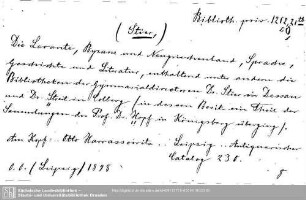 Biblioth. priv. 1212, 21
(Stier,)
Die Levante, Byzanz und Neugriechenland, Sprache,
Geschichte und Literatur, enthaltend unter andern die
Bibliotheken der Gymnasialdirectoren G. Stier in Dessau
und Dr. Streit in Kolberg (in dessen Besitz ein Theil der
Sammlungen des Prof. Dr. Hopf in Königsberg überging).
Am Kopf: Otto Harrassowitz. Leipzig. Antiquarischer
Catalog 230.
o. O. (Leipzig) 1898
8
Sächsische Landesbibliothek -
Staats- und Universitätsbibliothek Dresden